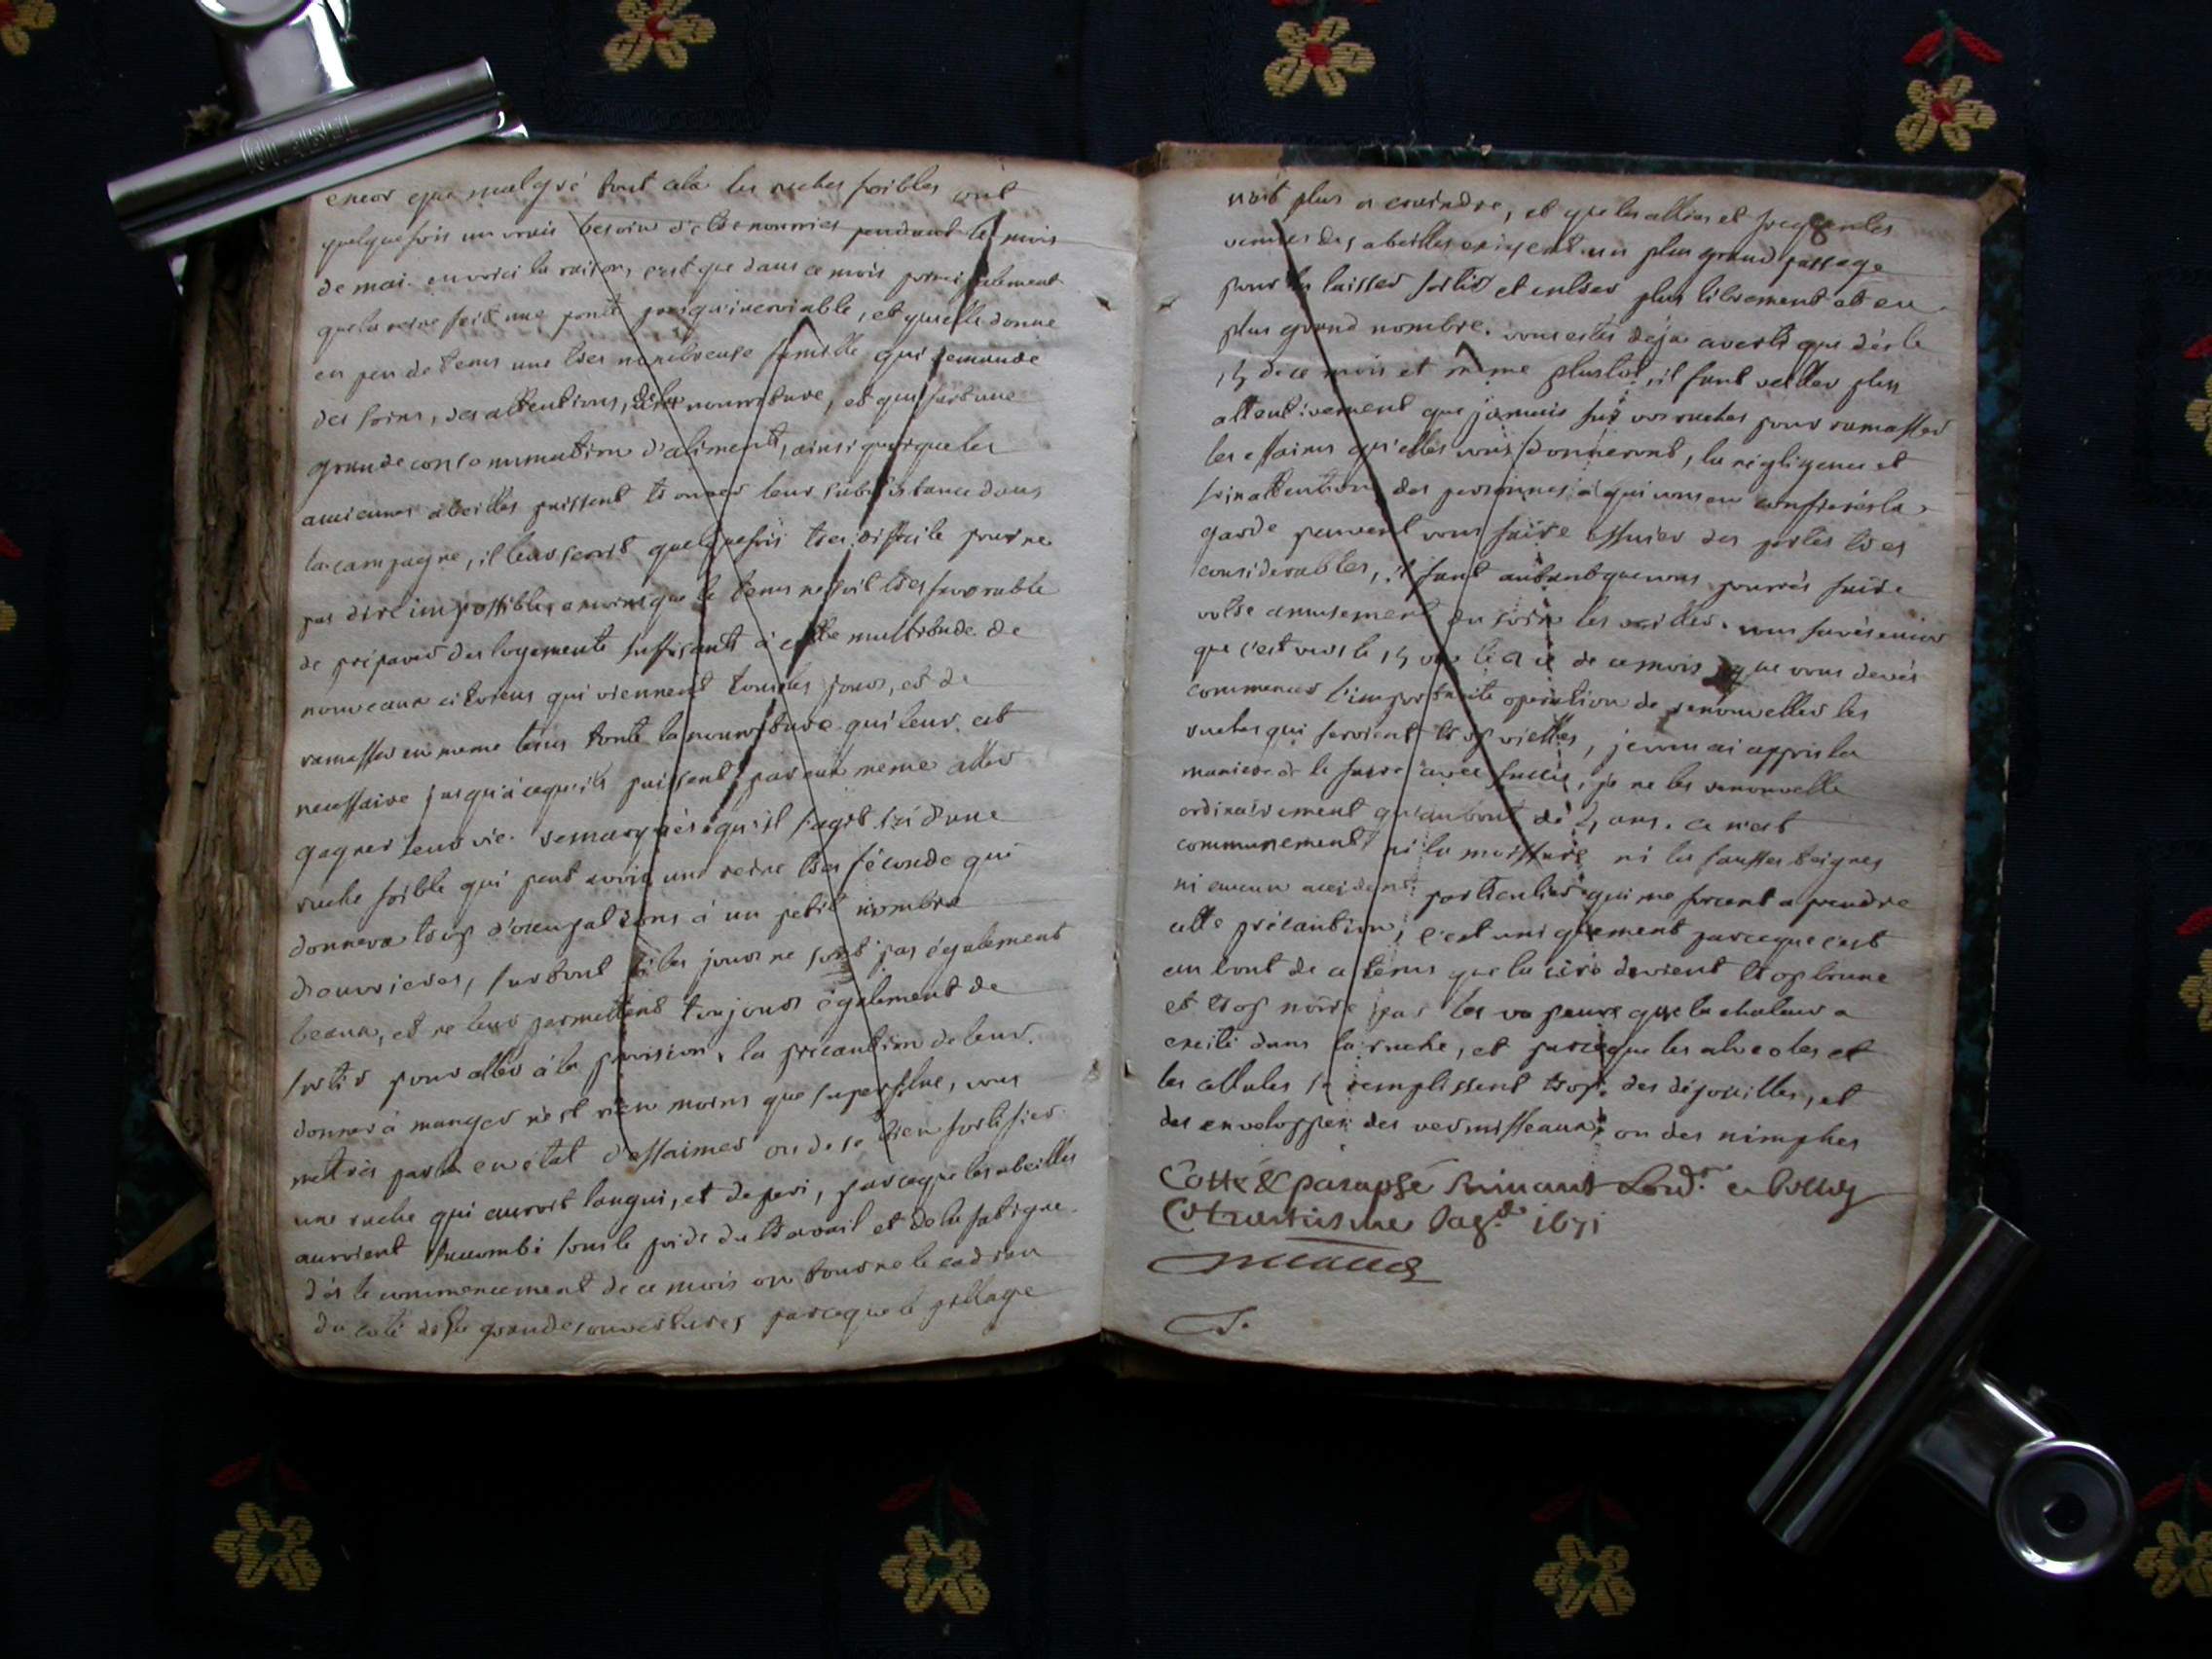 encor que malgré tout cela les ruches foibles ont
quelque fois un vrais besoin d'etre nourries pendant le mois
de mai. en voici la raison, c'est que dans ce mois principalement
que la reine fait une ponte presqu'incroiable, et qu'elle donne
en peu de tems une tres nombreuse famille qui demande
des soins, des attentions, de la nourriture, et qui fait une
grande consommation d'aliments, ainsi quoique les
anciennes abeilles puissent trouver leur subsistance dans
la campagne, il leur seroit quelquefois tres difficile pour ne
pas dire impossible, a moins que le tems ne soit tres favorable
de préparer des logements suffisants à cette multitude de
nouveaux citoiens qui viennent tous les jours, et de
ramasser en meme tems toute la nourriture qui leur est
necessaire jusqu'à cequ'ils puissent par eux meme aller
gagner leur vie. remarqués qu'il s'agit ici d'une
ruche foible qui peut avoir une reine tres féconde qui
donnera trop d'occupations à un petit nombre
d'ouvrieres, surtout si les jours ne sont pas également
beaux, et ne leur permettent toujours également de
sortir pour aller à la provision, la precaution de leur
donner à manger n'est rien moins que superflue, vous
mettrés par là en état d'essaimer ou de se bien fortifier
une ruche qui auroit langui, et deperi, parceque les abeilles
auroient sucombé sous le poids du travail et de la fatigue.
dès le commencement de ce mois on tourne le cadran
du coté de la grandes ouvertures, parceque le pillage
n'est plus a craindre, et que les allées et frequentes
venues des abeilles exigent un plus grand passage
pour les laisser sortir et entrer plus librement et en
plus grand nombre. vous estes déja averti que dès le
15 de ce mois et même plustot, il faut veiller plus
attentivement que jamais sur vos ruches pour ramasser
les essaims qu'elles vous donneront, la négligence et
l'inattention des personnes à qui vous en confierés la
garde peuvent vous faire essuier des pertes tres
considerables, il faut autant que vous pourrés faire
votre amusement du soin les veiller. vous savés encor
que c'est vers le 15 ou le de ce mois que vous devés
commencer l'importante operation de renouveller les
ruches qui seroient trop vieilles, je vous ai appris la
maniere de le faire avec succés, je ne les renouvelle
ordinairement qu'au bout de 5 ans. ce n'est
communement ni la moisissure ni les fausses teignes
ni aucun accident particulier qui me forcent a prendre
cette précaution; c'est uniquement parceque c'est
au bout de ce tems que la cire devient trop brune
et trop noire par les vapeurs que la chaleur a
excité dans la ruche, et parceque les alveoles et
les cellules se remplissent trop des dépouilles, et
des enveloppes des vermisseaux, ou des nimphes
Cotté & paraphé
1671